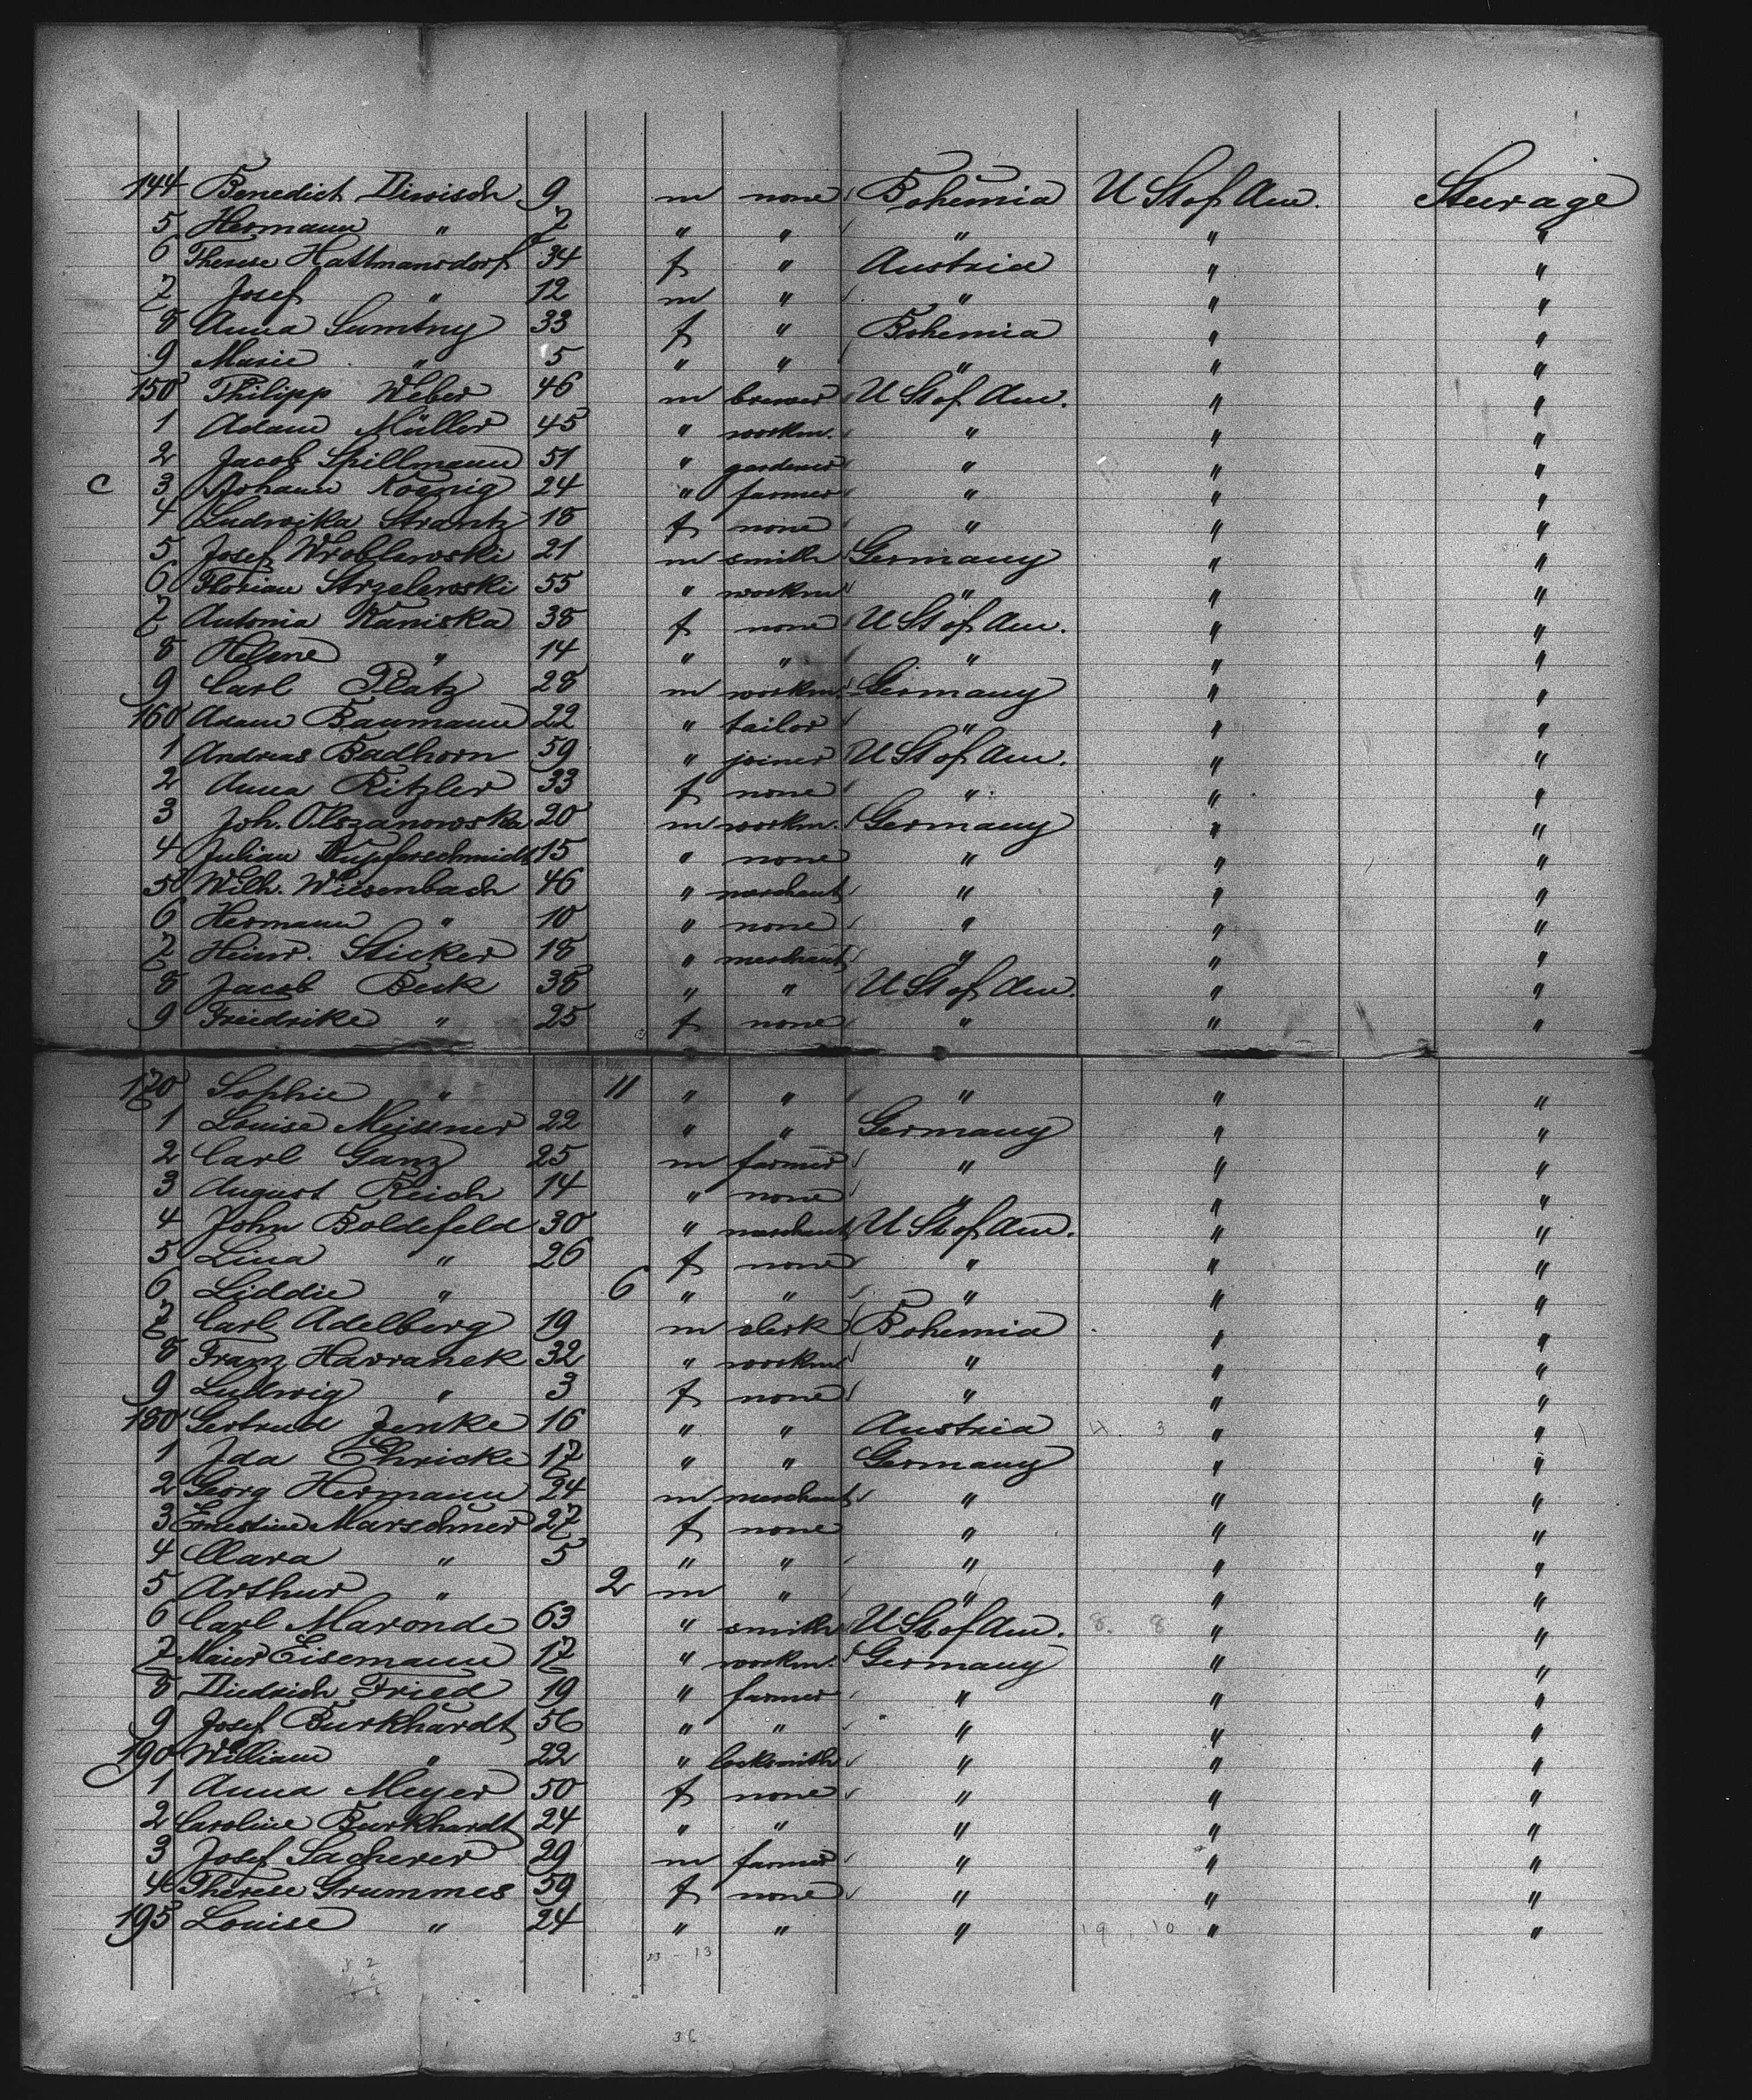 144 Benedict Diwisch 9 m none Bohemia U St of Am. Steerage
5 Hermann " 7 " " " " "
6 Therese Hattmansdorf 34 f " Austria " "
7 Josef " 12 m " " " "
8 Anna Sumtny 33 f " Bohemia " "
9 Marie " 5 " " " " "
150 Philipp Weber 46 m brewer U St of Am. " "
1 Adam Müller 45 " workm. " " "
2 Jacob Spillmann 51 " gardener " " "
C 3 Johann Koenig 24 " farmer " " "
4 Ludwika Strantz 18 f none " " "
5 Josef Wroblewski 21 m smith Germany " "
6 Florian Strzelewski 55 " workm " " "
7 Antonia Kaniska 38 f none U St of Am. " "
8 Helene " 14 " " " " "
9 Carl Platz 28 m workm. Germany " "
160 Adam Baumann 22 " tailor " " "
1 Andreas Badhorn 59 " joiner U St of Am. " "
2 Anna Ritzler 33 f none " " "
3 Joh. Olszanowska 20 m workm. Germany " "
4 Julian Kupferschmidt 15 " none " " "
5 Wilh. Wiesenbach 46 " merchant " " "
6 Hermann " 10 " none " " "
7 Heinr. Sticker 18 " merchant " " "
8 Jacob Beck 38 " " U St of Am. " "
9 Friedrike " 25 f none " " "
170 Sophie " 11 " " " " "
1 Louise Meissner 22 " " Germany " "
2 Carl Ganz 25 m farmer " " "
3 August Reich 14 " none " " "
4 John Boldefeld 30 " merchant U St of Am. " "
5 Lina " 26 f none " " "
6 Liddie " 6 " " " " "
7 Carl Adelberg 19 m clerk Bohemia " "
8 Franz Havranek 32 " workm " " "
9 Ludwig " 3 f none " " "
180 Gertrud Jenke 16 " " Austria 4. 3 " "
1 Ida Ehricke 17 " " Germany " "
2 Georg Hermann 24 m merchant " " "
3 Ernestine Marschner 27 f none " " "
4 Clara " 5 " " " " "
5 Arthur " 2 m " " " "
6 Carl Maronde 63 " smith U St of Am. 8. 8 " "
7 Maier Eisemann 17 " workm. Germany " "
8 Diedrich Fried 19 " farmer " " "
9 Josef Burkhardt 56 " " " " "
190 William " 22 " locksmith " " "
1 Anna Meyer 50 f none " " "
2 Caroline Burkhardt 24 " " " " "
3 Josef Sacherer 29 m farmer " " "
4 Therese Grummes 59 f none " " "
195 Louise " 24 " " " 19 10 " "
23 - 13
36